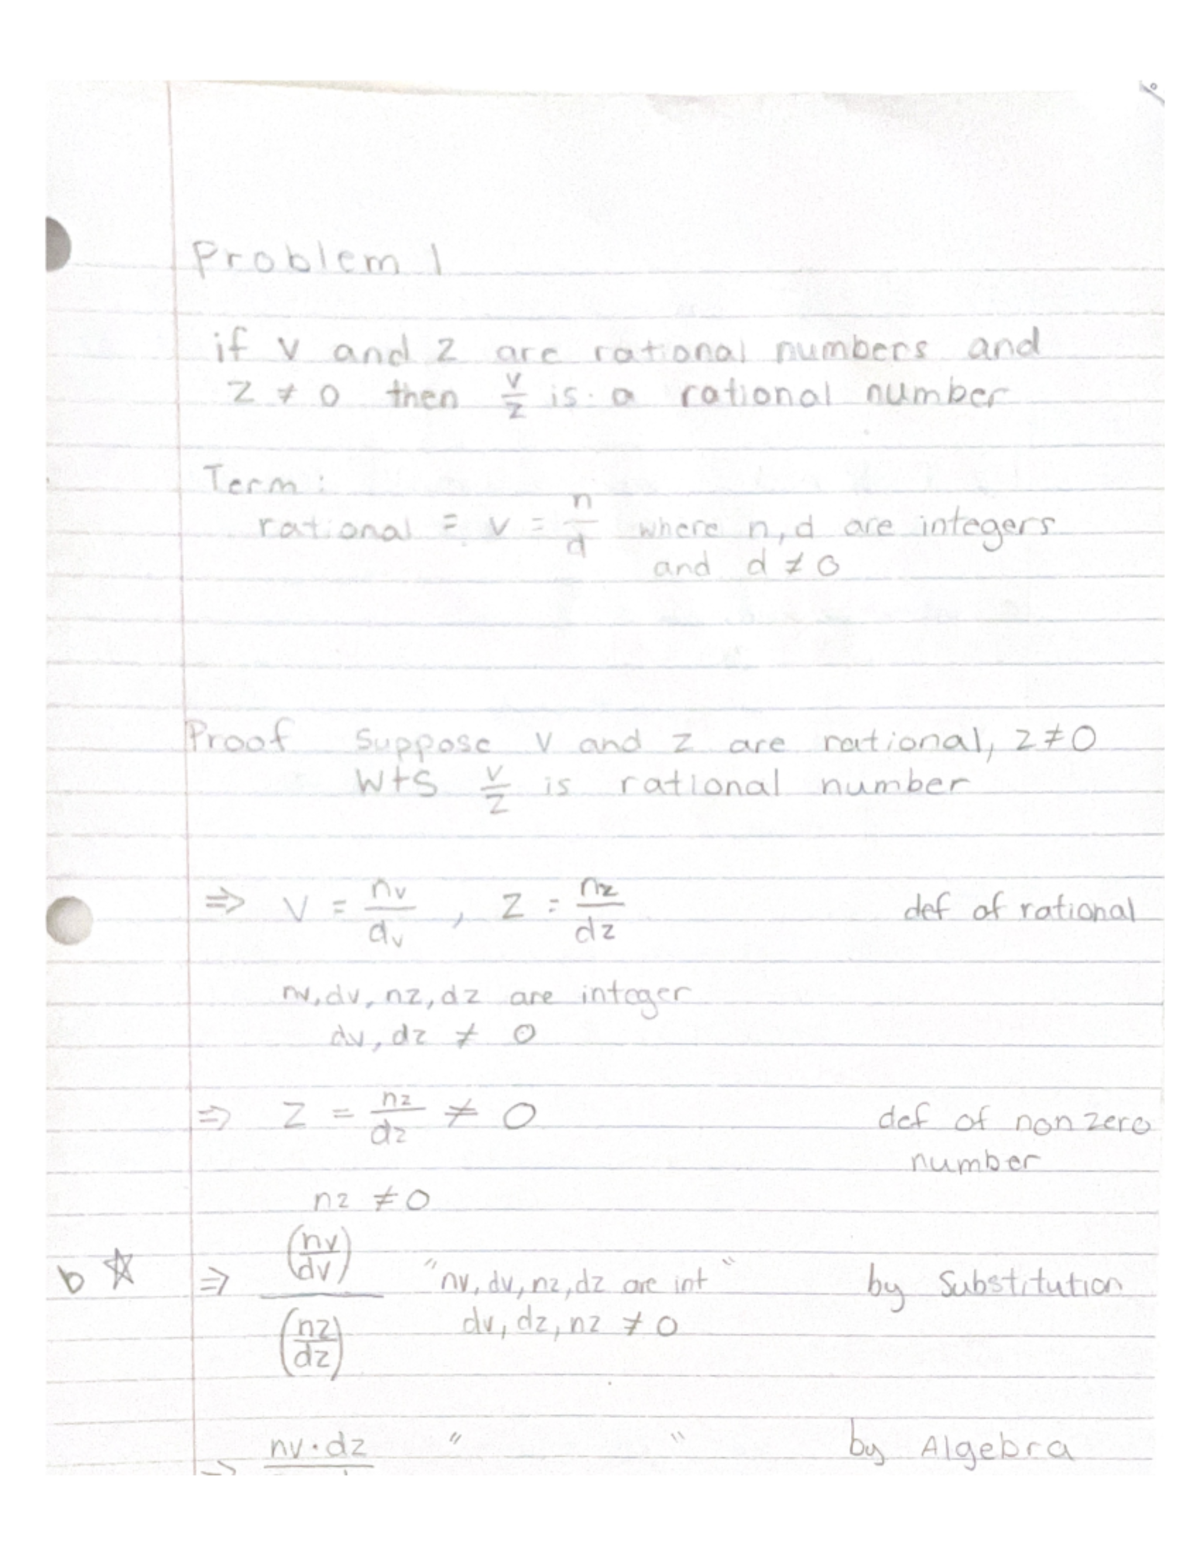 Problem 1
if v and z are rational numbers and
z ≠ 0 then v/z is a rational number
Term:
rational = v = n/d where n,d are integers
and d ≠ 0
Proof Suppose v and z are rational, z≠0
WtS v/z is rational number
⇒ v = nv/dv , z = nz/dz def of rational
nv,dv,nz,dz are integer
dv,dz ≠ 0
⇒ z = nz/dz ≠ 0 def of non zero
number
nz ≠ 0
b ☆ ⇒ (nv/dv)/(nz/dz) "nv,dv,nz,dz are int" by Substitution
dv,dz,nz ≠ 0
⇒ nv·dz " " by Algebra